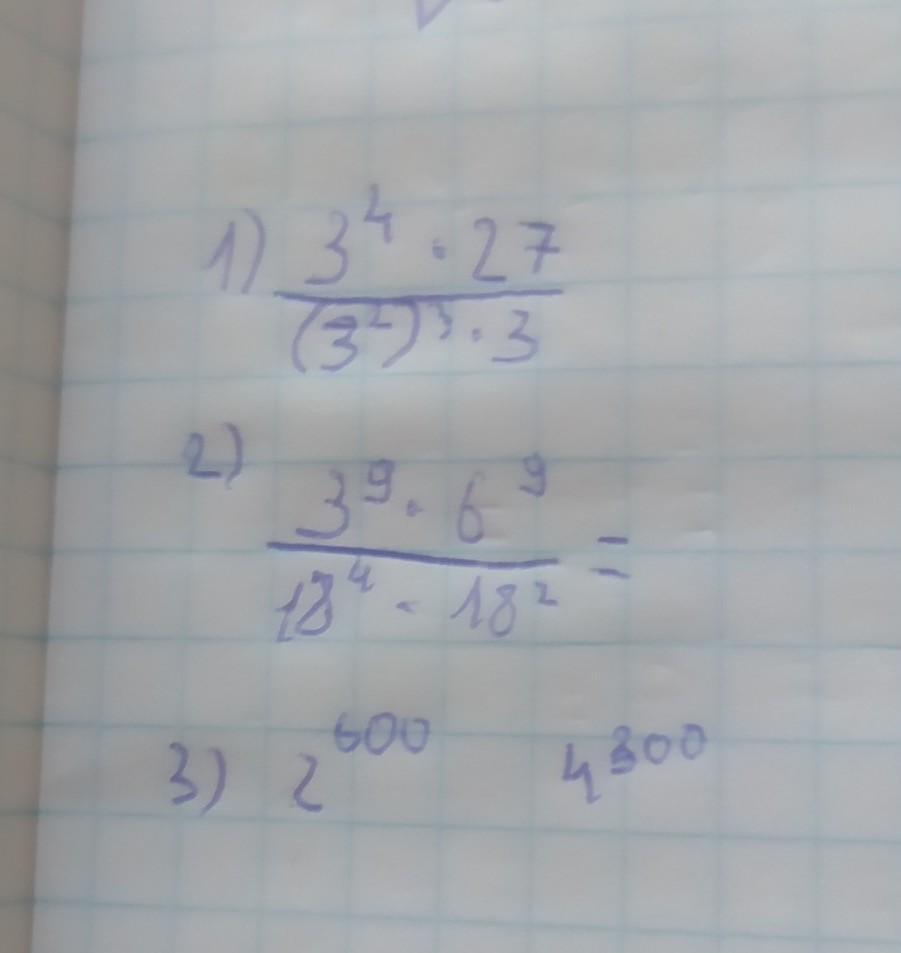 1) 3⁴ · 27
(3²)³ · 3
2)
3⁹ · 6⁹ =
18⁴ · 18²
3) 2⁶⁰⁰ 4³⁰⁰